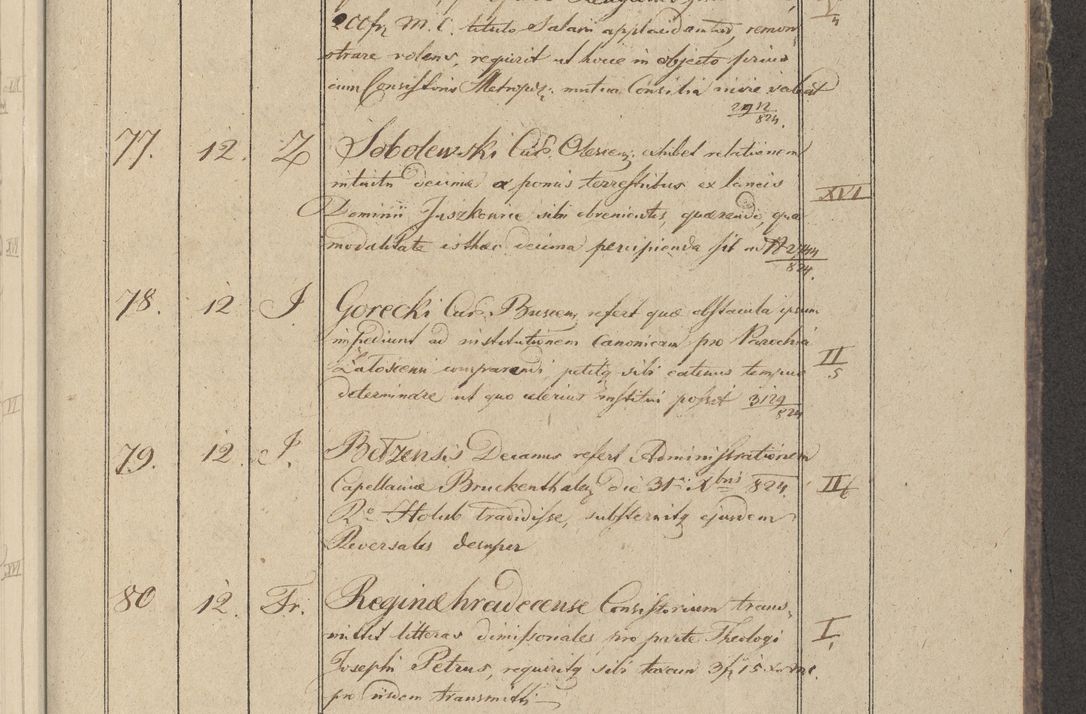 200 fr M. C. titulo Salarii applacidantur, remon
strare volens, requirit ut hocce in objecto prius
cum Consistorio Metropol: mutua Consilia inire valeat
2912/824.
77. 12. Z Sobolewski Cur. Olescen: exhibet relationem
intuitu decimae a pomis terrestribus ex lancis
Dominii Juszkowce sibi obvenientis, quaerendo, qua XVI
modalitate isthaec decima percipienda sit ad N 2744/824.
78. 12 J Gorecki Cur. Buscen, refert quae obstacula ipsum
impediunt ad institutionem Canonicam pro Parochia
Zalosciensi comparendi, petitq sibi eatenus tempus II/5
determinare ut quo celerius institui posset 3129/824
79. 12 J. Betzensis Decanus refert Administrationem
Capellaniae Bruckenthalen die 31a Xbris 824. II/6
Ro Holub tradidisse, substernitq ejusdem
Reversales desuper
80 12. Fr. Reginaehradecense Consistorium trans-
mittit litteras dimissoriales pro parte Theologi I.
Josephi Petrus, requiritq sibi taxam 3 fr 15 xr
pro iisdem transmitti